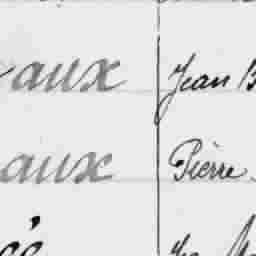 aux Jean B
aux Pierre